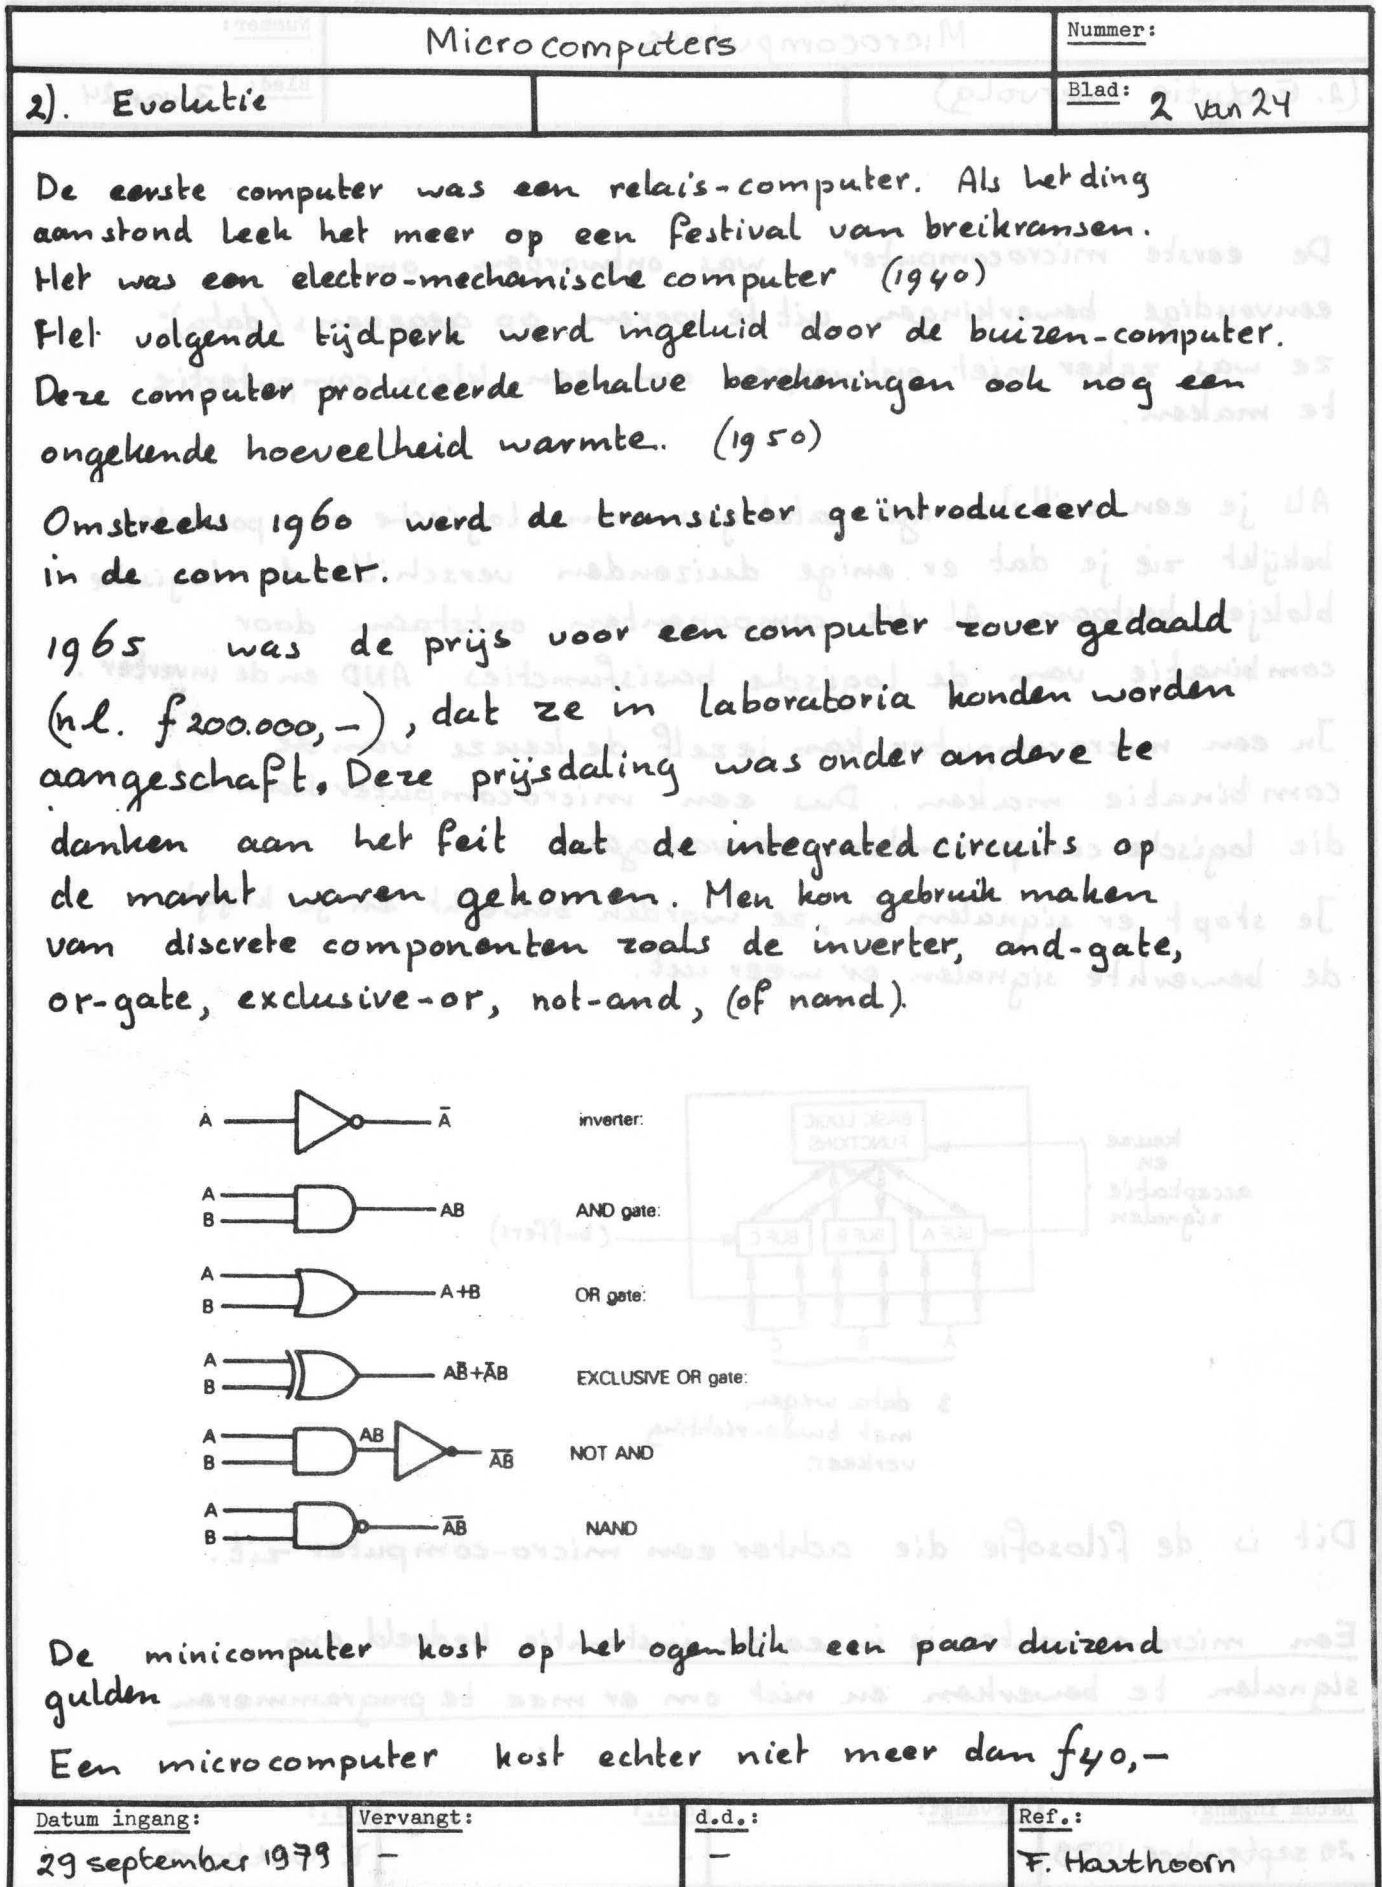 Microcomputers
Nummer:
2). Evolutie
Blad: 2 van 24
De eerste computer was een relais-computer. Als het ding
aanstond leek het meer op een festival van breikransen.
Het was een electro-mechanische computer (1940)
Het volgende tijdperk werd ingeluid door de buizen-computer.
Deze computer produceerde behalve berekeningen ook nog een
ongekende hoeveelheid warmte. (1950)
Omstreeks 1960 werd de transistor geïntroduceerd
in de computer.
1965 was de prijs voor een computer zover gedaald
(n.l. f 200.000,-), dat ze in laboratoria konden worden
aangeschaft. Deze prijsdaling was onder andere te
danken aan het feit dat de integrated circuits op
de markt waren gekomen. Men kon gebruik maken
van discrete componenten zoals de inverter, and-gate,
or-gate, exclusive-or, not-and, (of nand).
A Ā inverter:
A
B AB AND gate:
A
B A+B OR gate:
A
B AB̄+ĀB EXCLUSIVE OR gate:
A
B AB A̅B̅ NOT AND
A
B A̅B̅ NAND
De minicomputer kost op het ogenblik een paar duizend
gulden
Een microcomputer kost echter niet meer dan f40,-
Datum ingang: Vervangt: d.d.: Ref.:
29 september 1979 - - F. Harthoorn